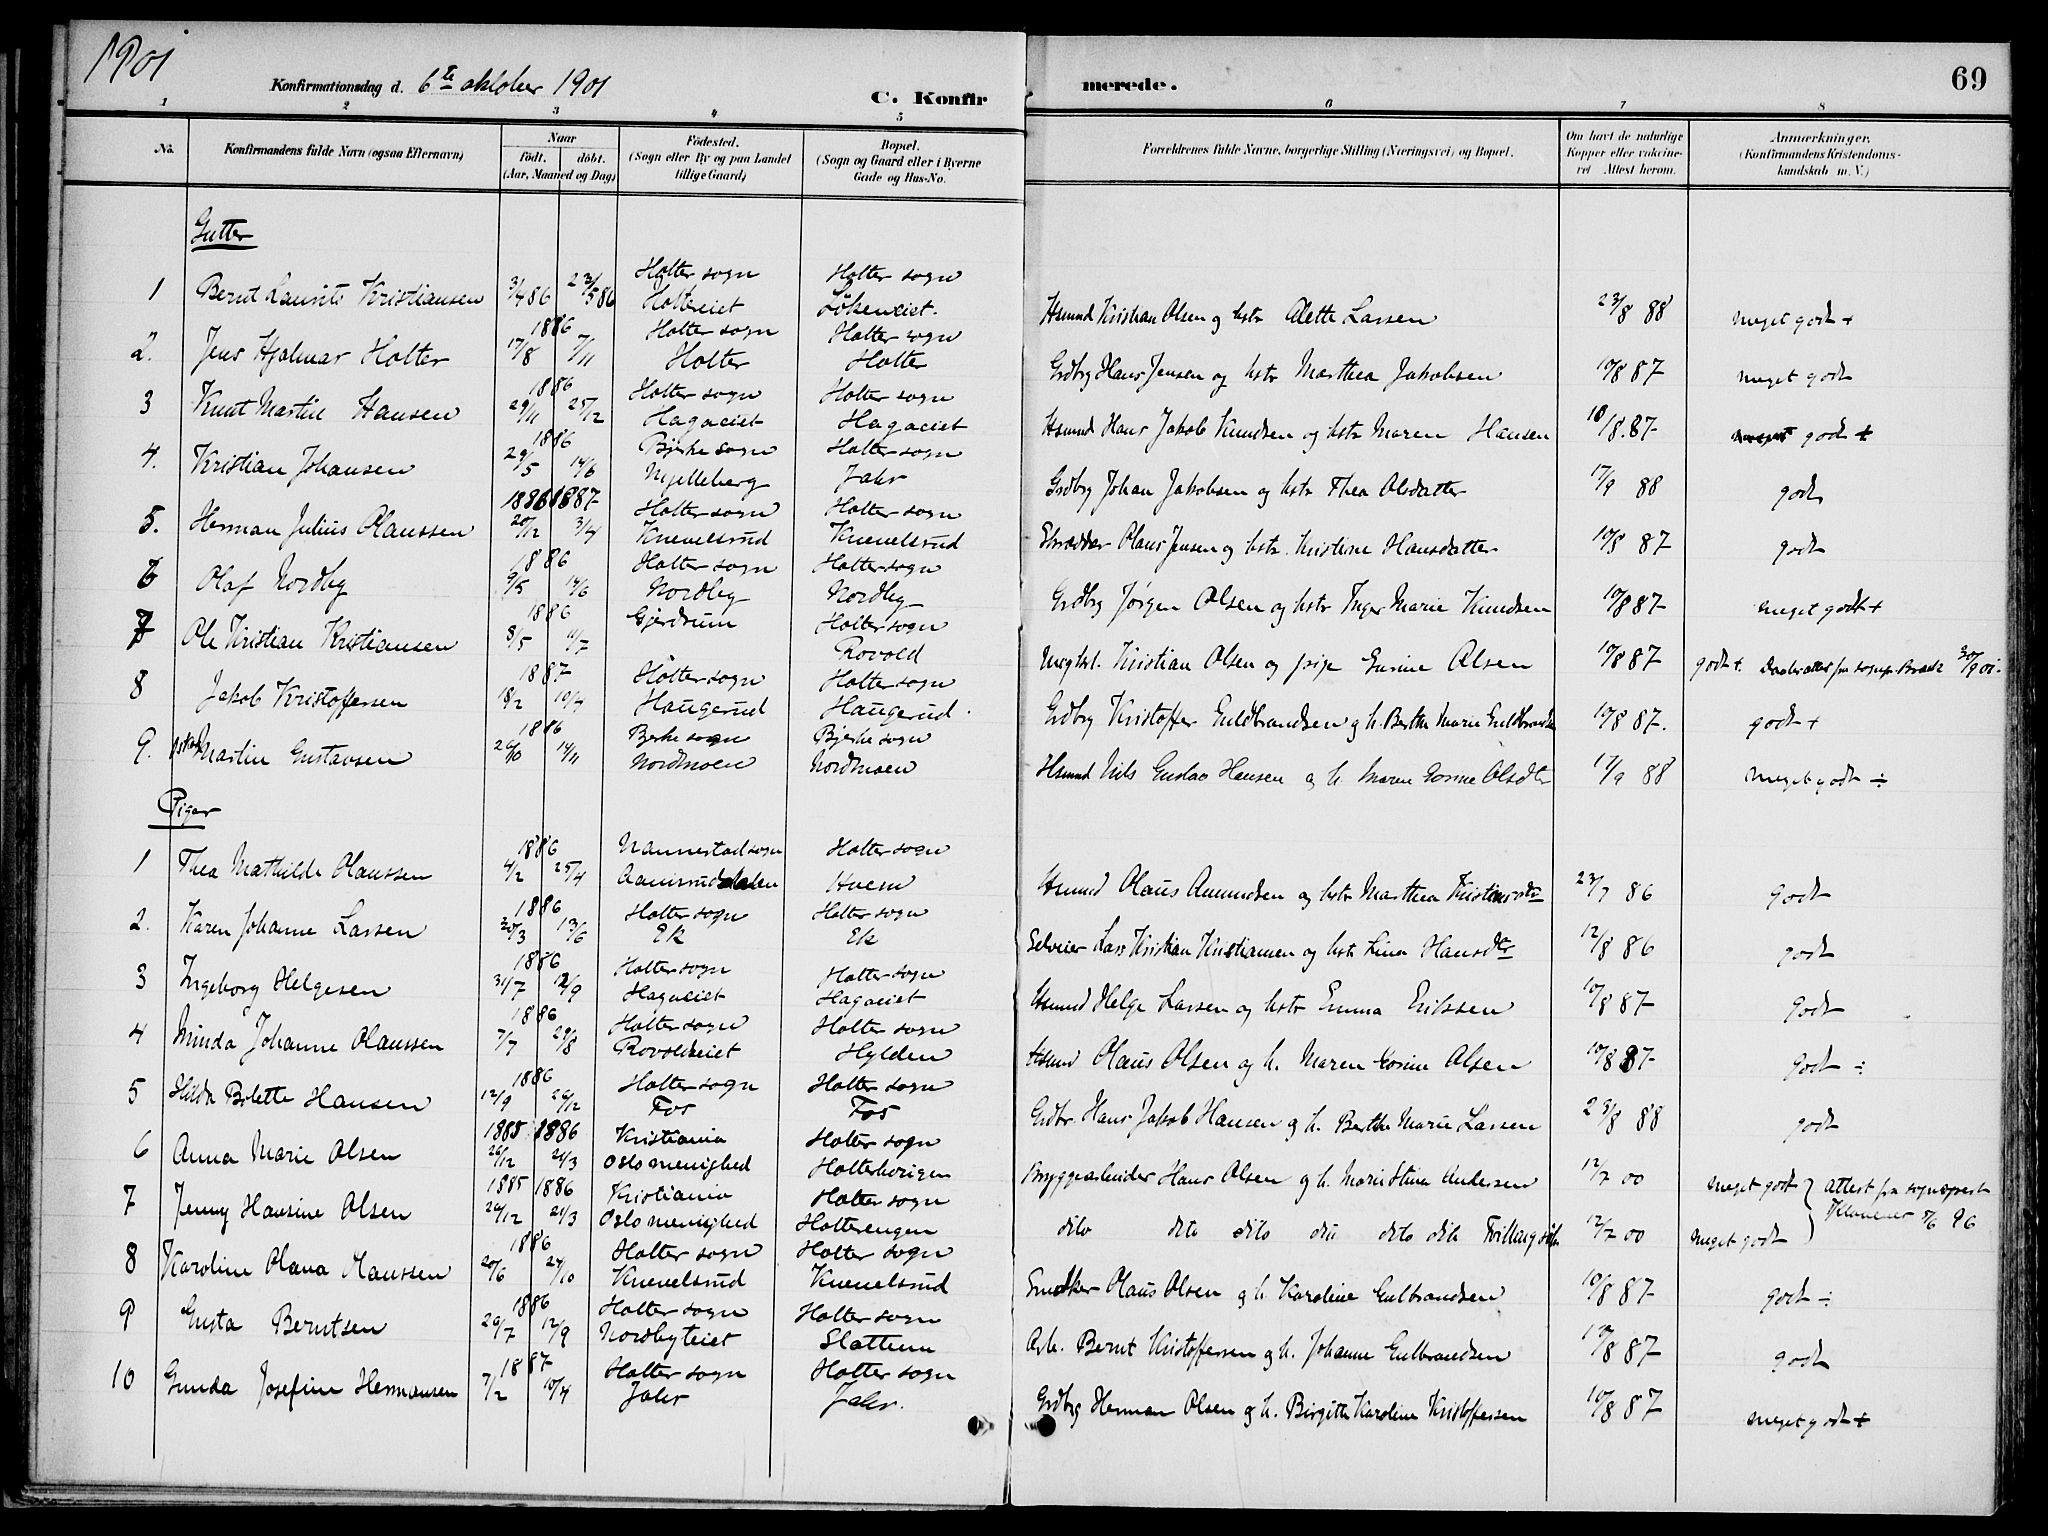 1901
Konfirmationsdag d. 6te oktober 1901
C. Konfirmerede.
69
1 2 3 4 5 6 7 8
No.
Konfirmandens fulde Navn (ogsaa Efternavn)
Naar födt. döbt. (Aar, Maaned og Dag)
Födested. (Sogn eller By og paa Landet tillige Gaard)
Bopæl. (Sogn og Gaard eller i Byerne Gade og Hus-No.
Forældrenes fulde Navne, borgerlige Stilling (Næringsvei) og Bopæl.
Om havt de naturlige Kopper eller vakcineret Attest herom.
Anmærkninger. (Konfirmandens Kristendomskundskab m. V.)
Gutter
1 Bernt Laurits Kristiansen 3/4 86 23/5 86 Holter sogn Holtereiet Holter sogn Løkeneiet. Hsmnd Kristian Olsen og hstr Alette Larsen 23/8 88 meget godt +
2. Jens Hjalmar Holter 1886 17/8 7/11 Holter sogn Holter Holter sogn Holter Grdbrg Hans Jensen og hstr Marthea Jakobsen 10/8 87 meget godt
3 Knut Martin Hansen 1886 29/11 25/12 Holter sogn Hagaeiet Holter sogn Hagaeiet Hsmnd Hans Jakob Knudsen og hstr Maren Hansen 10/8. 87 godt +
4. Kristian Johansen 1886 29/5 14/6 Bjerke sogn Mjelleberg Holter sogn Jahr Grdbrg Johan Jakobsen og hstr Thea Olsdatter 17/9 88 godt
5. Herman Julius Olaussen 1886 1887 20/12 3/4 Holter sogn Knevelsrud Holter sogn Knevelsrud Skrædder Olaus Jensen og hstr. Kristine Hansdatter 10/8 87 godt
6 Olaf Nordby 1886 9/5 14/6 Holter sogn Nordby Holter sogn Nordby Grdbrg Jørgen Olsen og hstr Inger Marie Knudsen 10/8 87 meget godt +
7 Ole Kristian Kristiansen 1886 8/5 11/7 Gjerdrum Holter sogn Rovold Kristian Olsen og pige Gurine Olsen 10/8 87 godt +. 30/9 01.
8 Jakob Kristoffersen 1887 18/2 10/4 Holter sogn Haugerud Holter sogn Haugerud. Grdbrg Kristoffer Guldbrandsen og h. Berthe Marie Guldbrands 10/8 87. godt +
9. Martin Gustavsen 1886 26/10 14/11 Bjerke sogn Nordmoen Bjerke sogn Nordmoen Hsmnd Nils Gustav Hansen og h. Maren Gorine Olsdtr 17/9 88 meget godt ÷
Piger
1 Thea Mathilde Olaussen 1886 4/2 25/4 Nannestad sogn Holter sogn Hsmnd Olaus Amundsen og hstr Marthea Kristiansdtr 23/7 86 godt
2. Karen Johanne Larsen 1886 20/3 13/6 Holter sogn Ek Holter sogn Ek Selveier Lars Kristian Kristiansen og hstr Lina Hansdtr 12/8 86 godt
3 Ingeborg Helgesen 1886 31/7 12/9 Holter sogn Hagaeiet Holter sogn Hagaeiet Hsmnd Helge Larsen og hstr Emma Eriksen 10/8 87 godt
4 Minda Johanne Olaussen 1886 7/7 29/8 Holter sogn Rovoldeiet Holter sogn Hylden Hsmnd Olaus Olsen og h. Maren Gorine Olsen 10/8 87 godt ÷
5 Hilda Bolette Hansen 1886 12/9 26/12 Holter sogn Fos Holter sogn Fos Grdbr. Hans Jakob Hansen og h. Berthe Marie Larsen 23/8 88 godt
6 Anna Marie Olsen 1885 1886 26/12 21/3 Kristiania Oslo menighed Holter sogn Bryggearbeider Hans Olsen og h. Marie Stina Andersen 12/7 00 meget godt } attest fra sogneprest
7 Jenny Hansine Olsen 1885 1886 26/12 21/3 Kristiania Oslo menighed Holter sogn Holterengen dito dito dito dito dito dito 12/7 00 meget godt 96
8 Karoline Olava Olaussen 1886 20/6 24/10 Holter sogn Knevelsrud Holter sogn Knevelsrud Snedker Olaus Olsen og h. Karoline Gulbrandsen 10/8 87 godt ÷
9 Gusta Berntsen 1886 20/7 12/9 Holter sogn Nordbyeiet Holter sogn Slattum Arb. Bernt Kristoffersen og h. Johanne Gulbrandsen 10/8 87 godt
10 Gunda Josefine Hermansen 1887 7/2 10/4 Holter sogn Jahr Holter sogn Jahr. Grdbrg Herman Olsen og h. Birgitte Karoline Kristoffersen 10/8 87 meget godt +